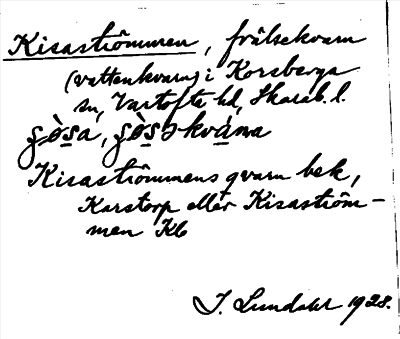 Kisaströmmen, frälsekvarn
(vattenkvarn) i Korsberga
sn, Vartofta hd, Skarab. l.
Kisaströmmens qvarn bek,
Karstorp eller Kisaström-
men Kb
J. Lundahl 1928.